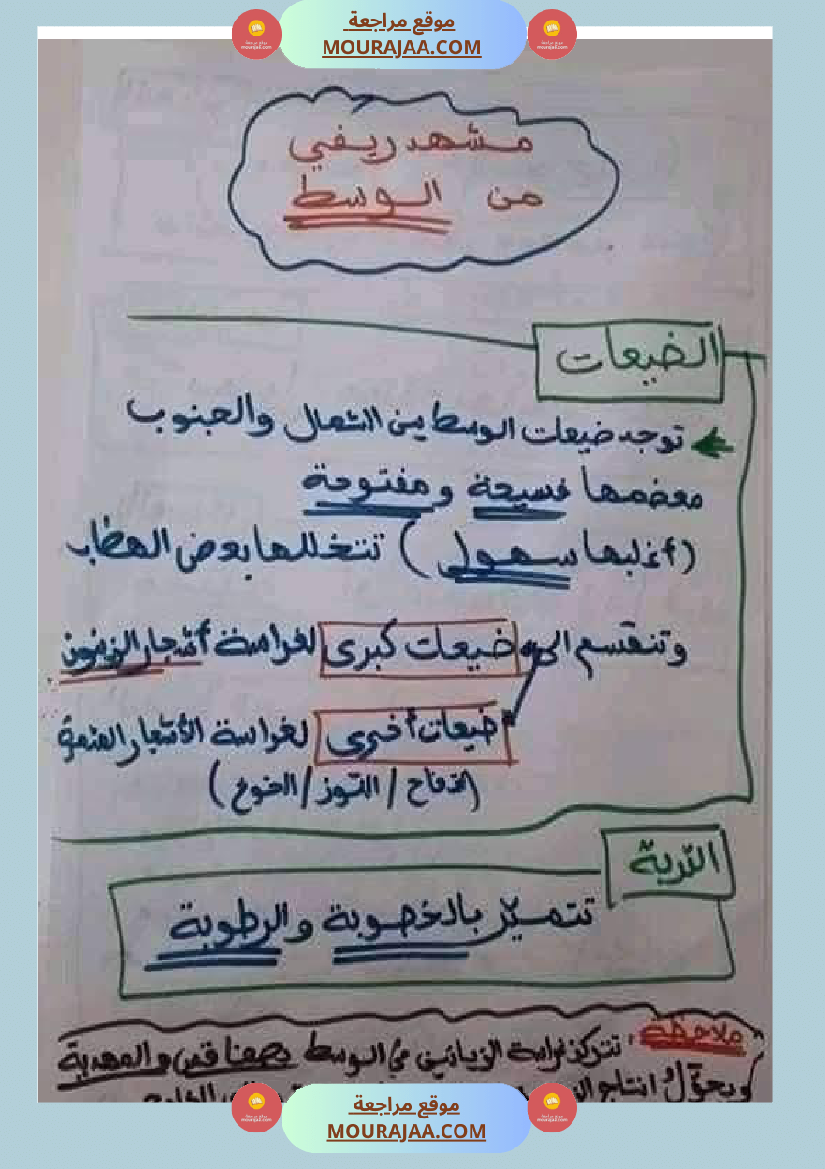 موقع مراجعة
MOURAJAA.COM
مشهد ريفي
من الوسط
الضيعات
توجد ضيعات الوسط بين الشمال والجنوب
معضمها فسيحة ومفتوحة
(أغلبها سهول) تتخللها بعض الهضاب
وتنقسم الى ضيعات كبرى لغراسة أشجار الزيتون
ضيعات أخرى لغراسة الأشجار المثمرة
(التفاح / اللوز / الخوخ)
التربة
تتميّز بالخصوبة والرطوبة
ملاحظة: تتركز غراسة الزياتين في الوسط بصفاقس والمهدية
ويحوّل انتاج
موقع مراجعة
MOURAJAA.COM